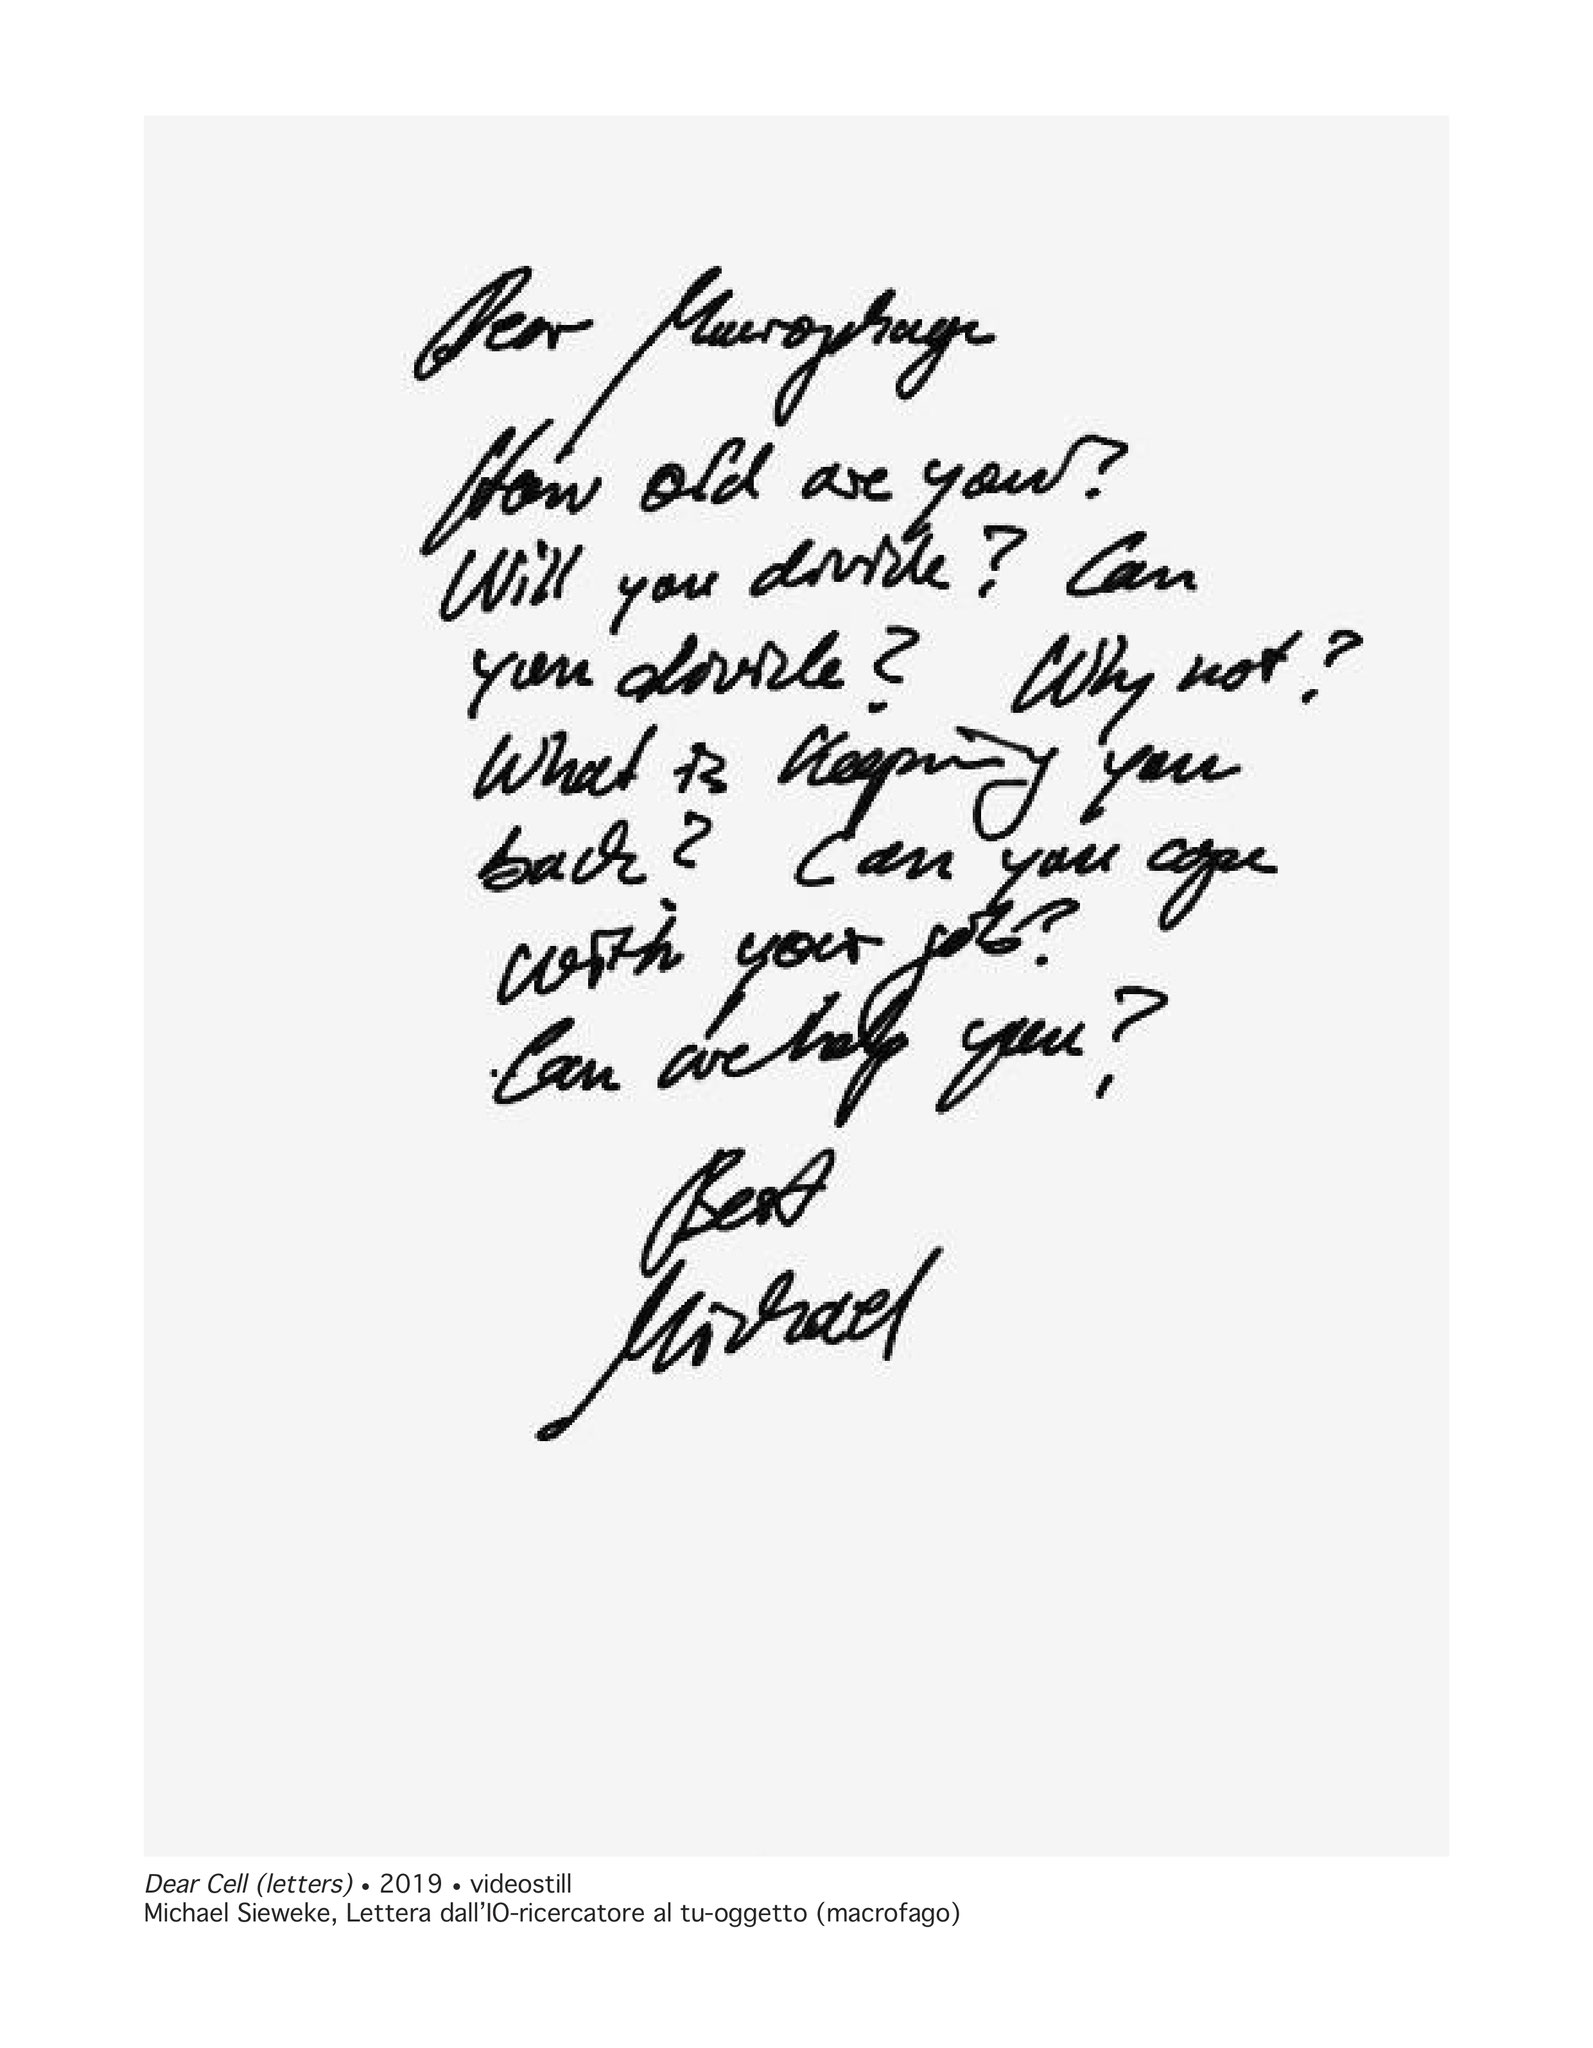 Dear Macrophage
How old are you?
Will you divide? Can
you divide? Why not?
What is keeping you
back? Can you cope
with your job?
Can we help you?
Best
Michael
Dear Cell (letters) • 2019 • videostill
Michael Sieweke, Lettera dall’IO-ricercatore al tu-oggetto (macrofago)